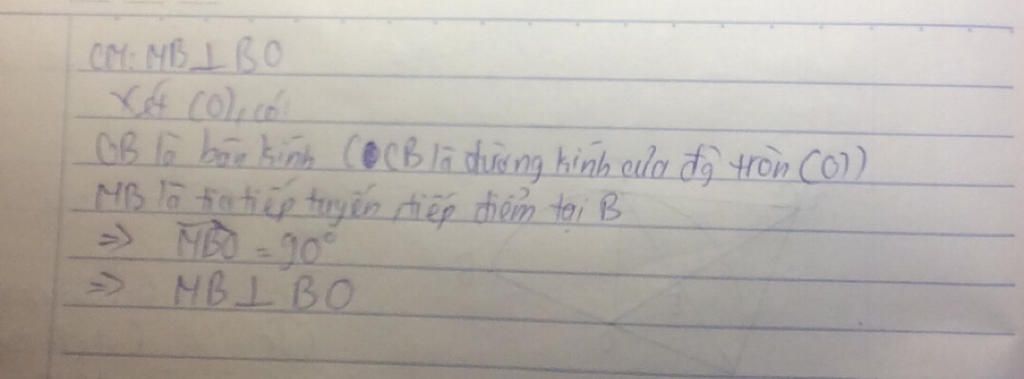 CM: MB ⊥ BO
Xét (O), có:
OB là bán kính (CB là đường kính của đg tròn (O))
MB là tia tiếp tuyến tiếp điểm tại B
=> MBO = 90°
=> MB ⊥ BO